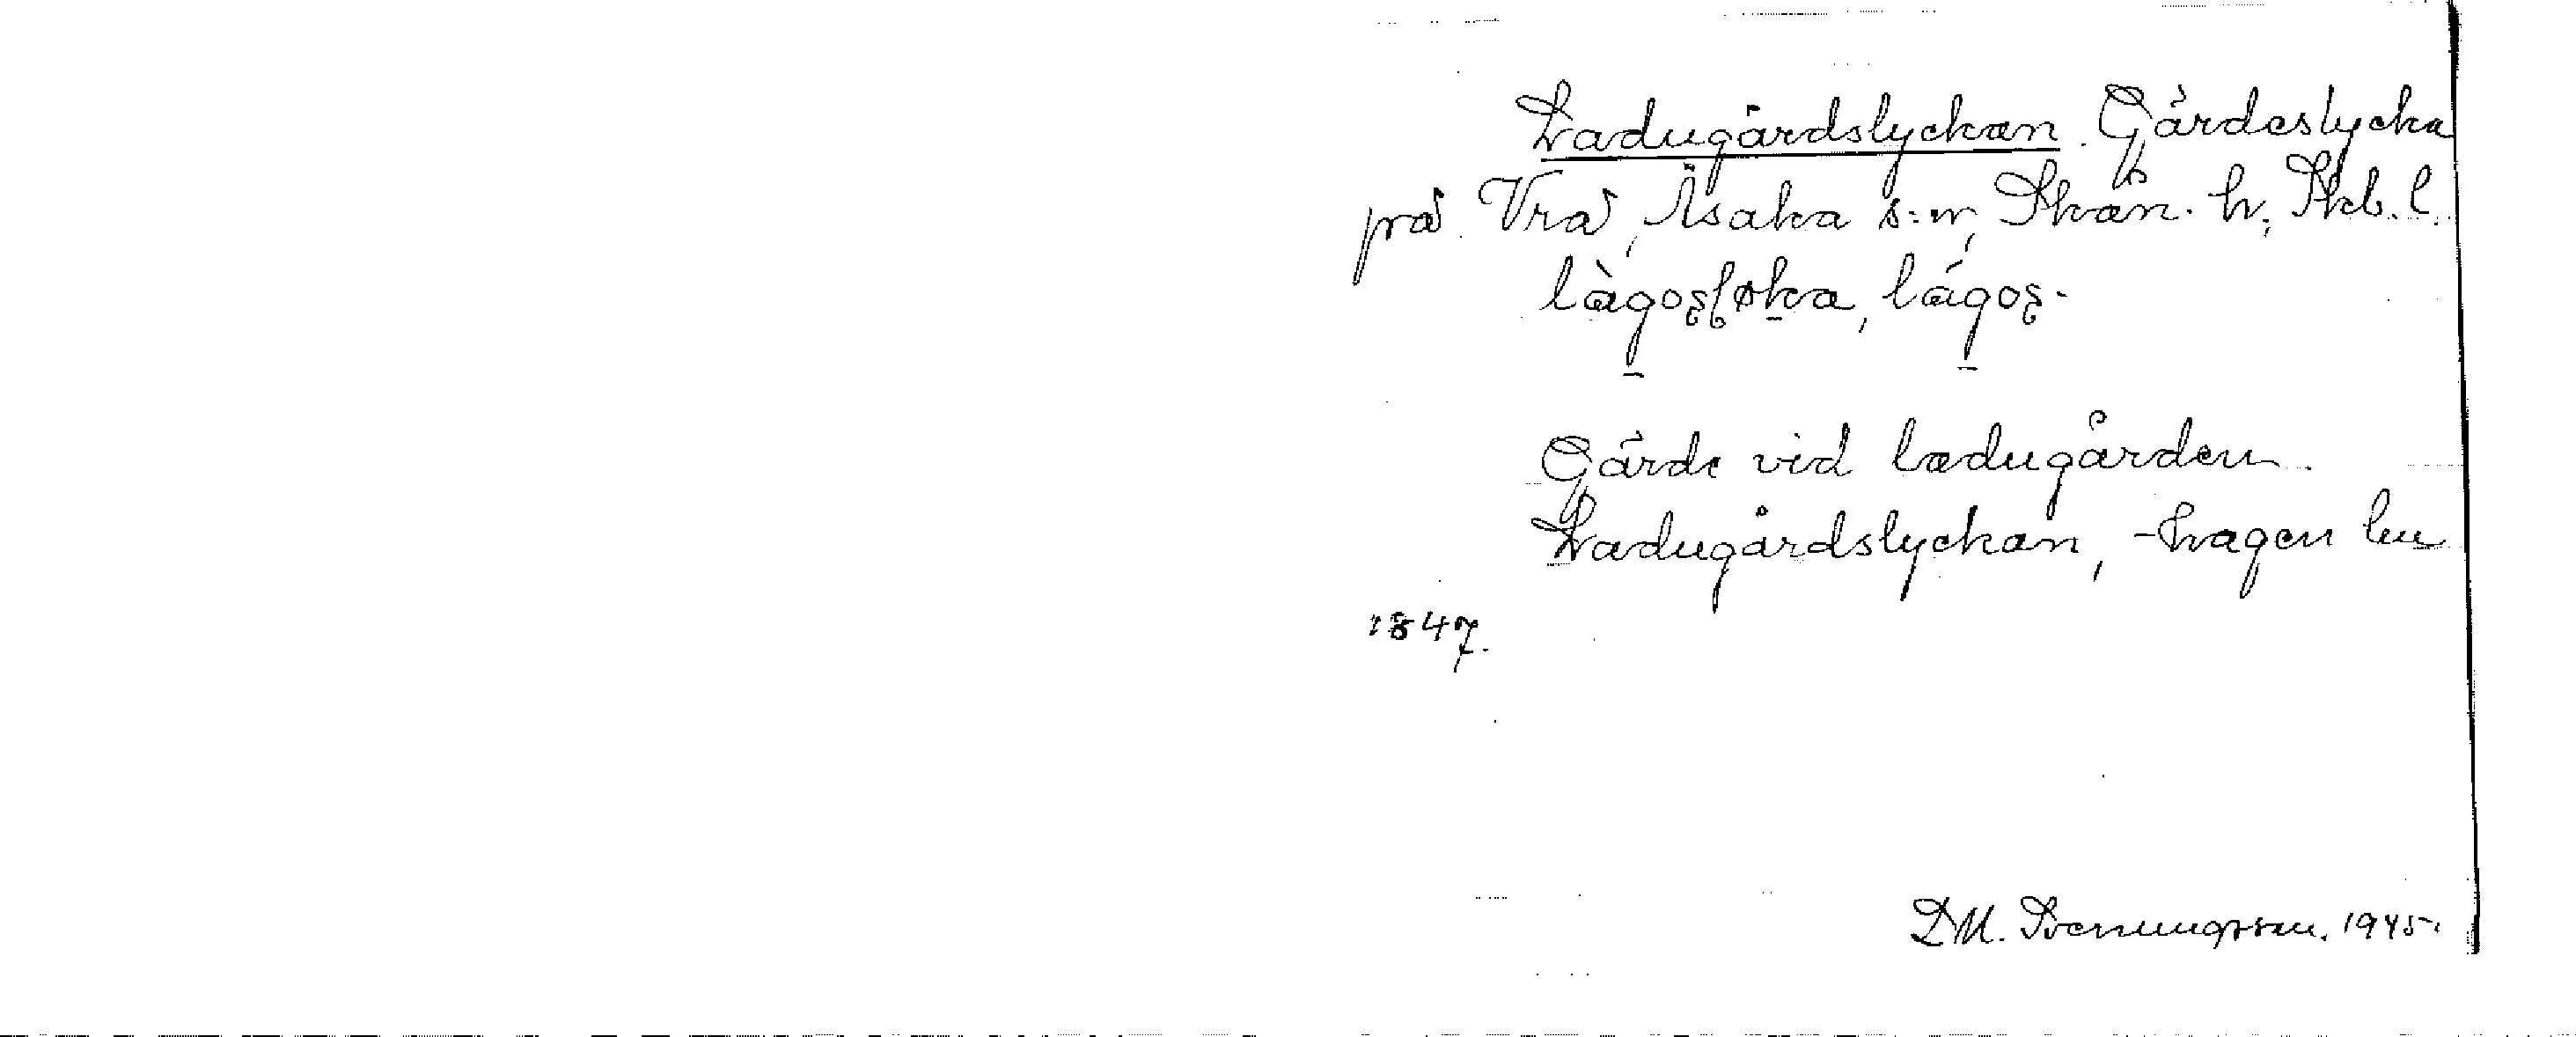 Ladugårdslyckan. Gärdeslycka
på Vrå, Åsaka s:n, Skån. h. Skb. l.
làgosl̥øka, lágos-
Gärde vid ladugården.
Ladugårdslyckan, -hagen lm
1847.
D.M. Svenningsson. 1945.